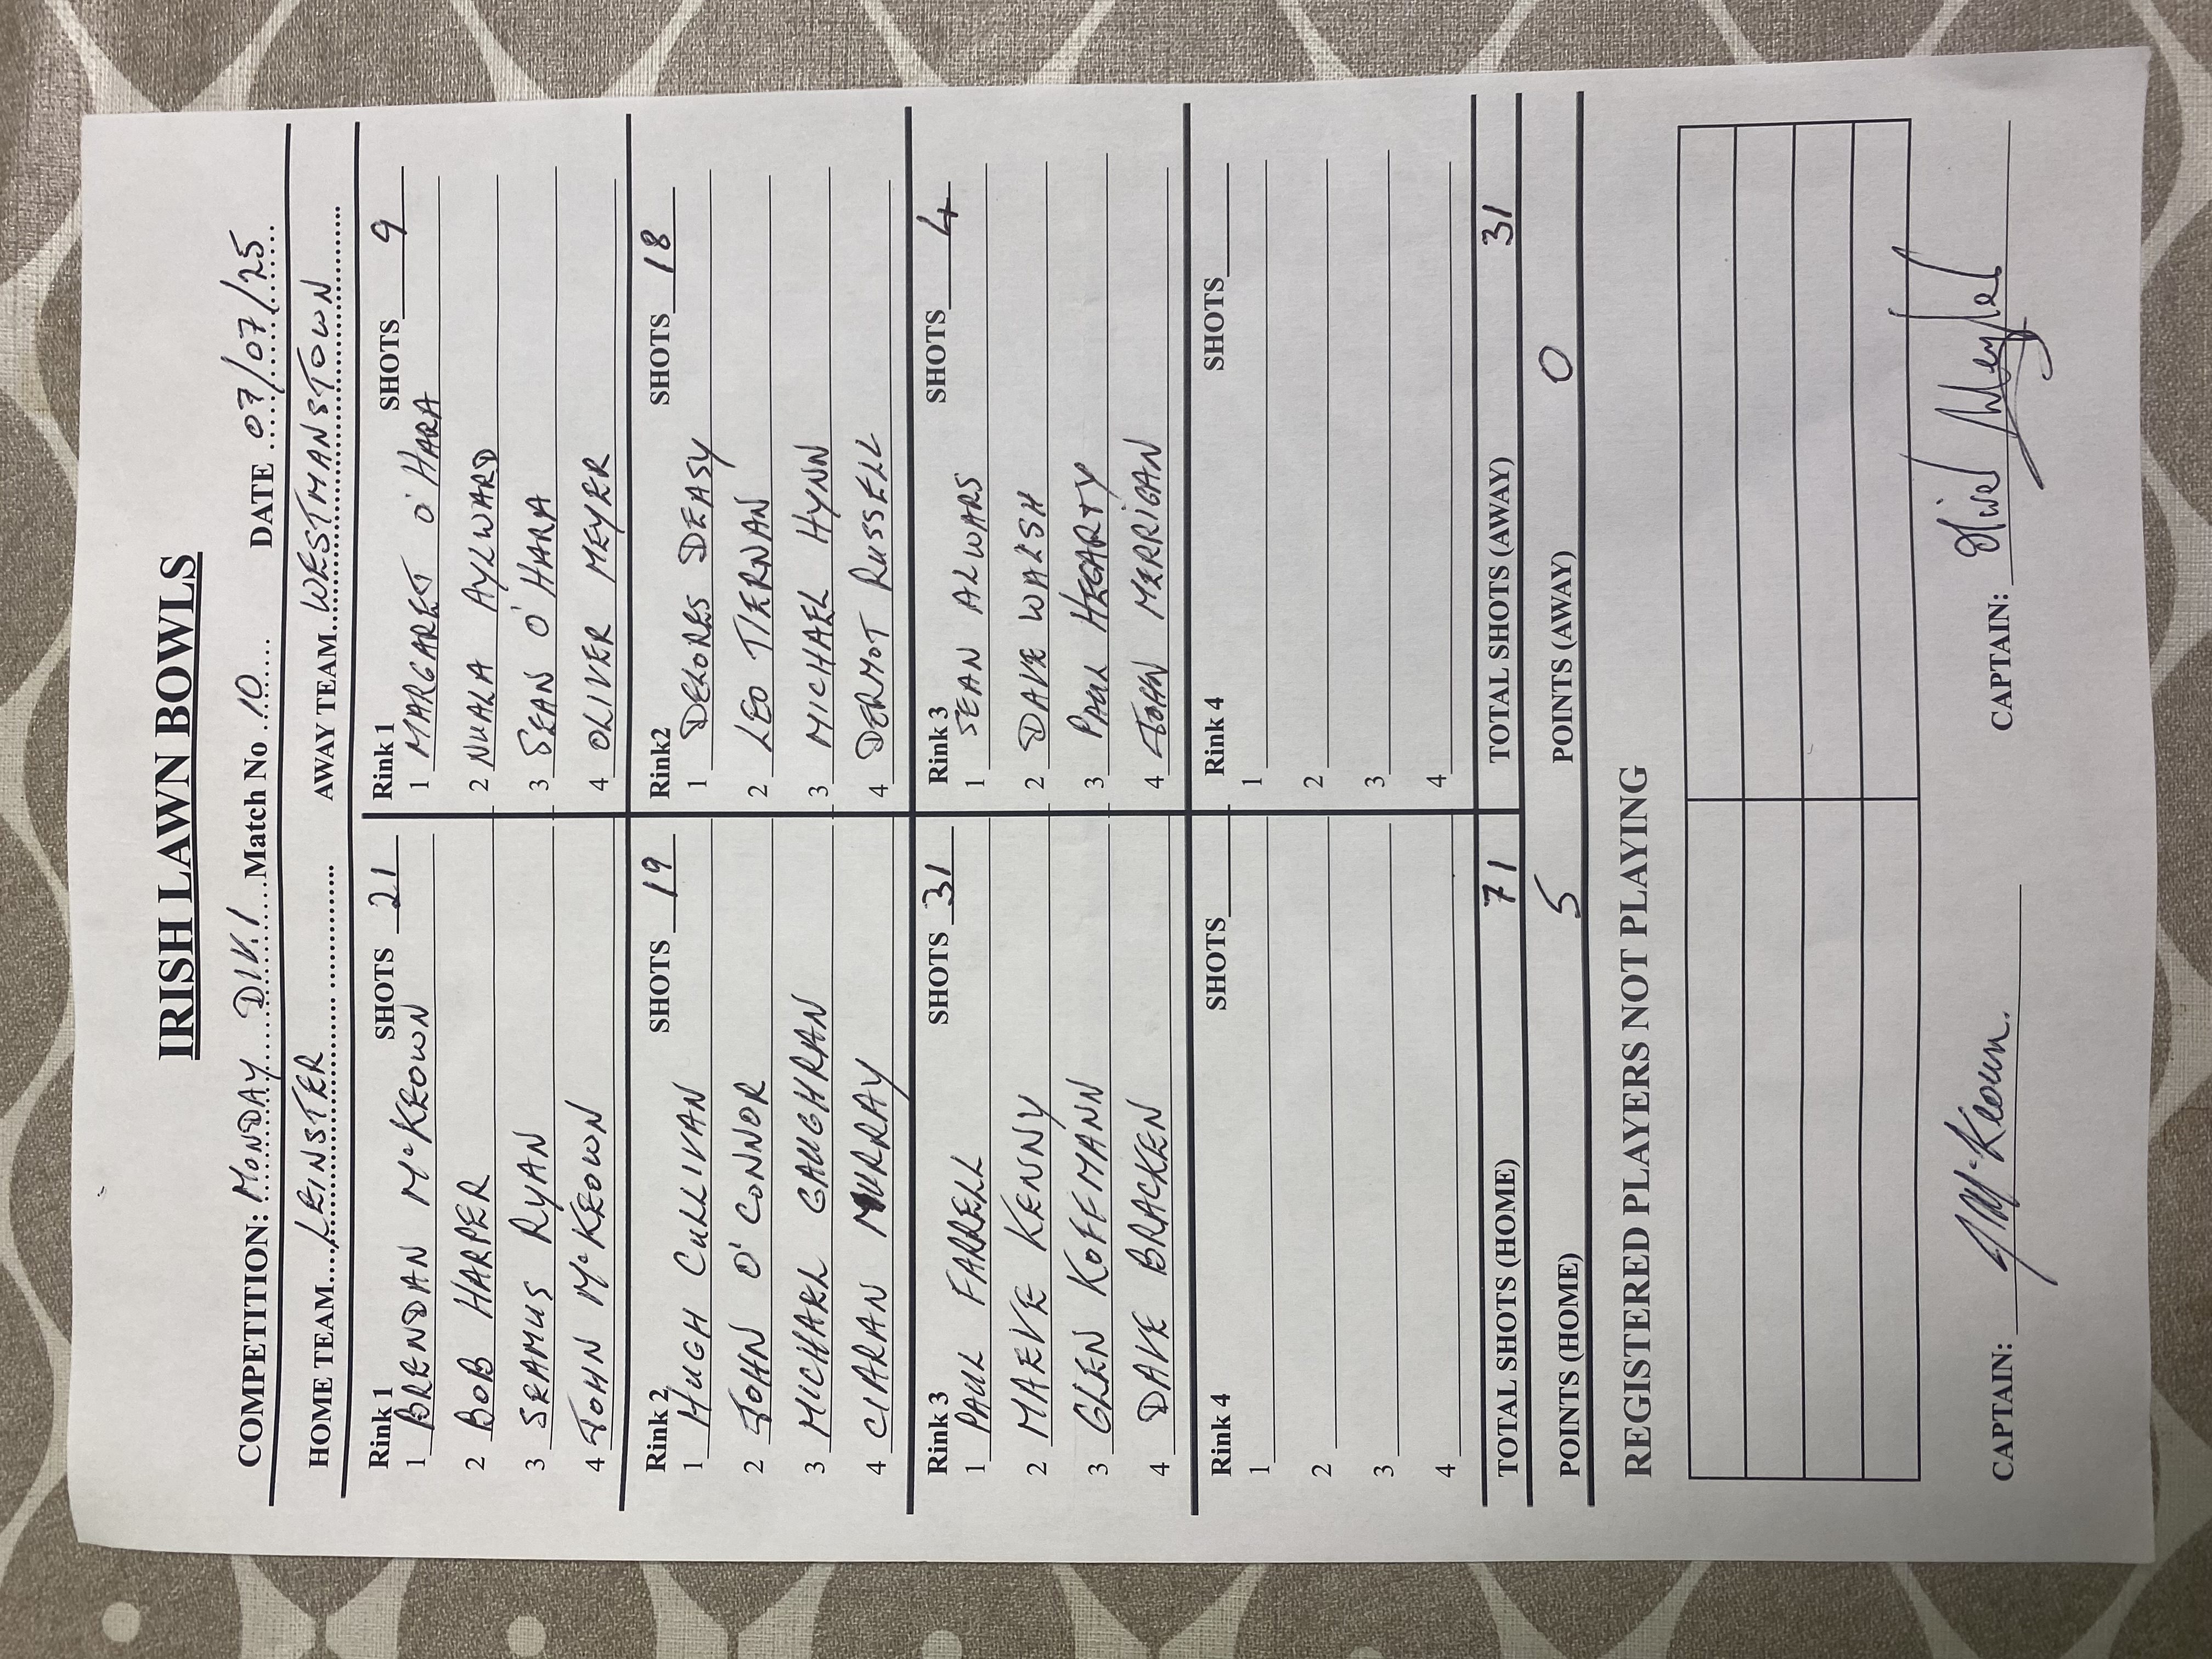 IRISH LAWN BOWLS
COMPETITION: MONDAY DIV.1 Match No 10 DATE 07/07/25
HOME TEAM LEINSTER AWAY TEAM WESTMANSTOWN
Rink 1 SHOTS 21
1 BRENDAN McKEOWN
2 BOB HARPER
3 SEAMUS RYAN
4 JOHN McKEOWN
Rink 1 SHOTS 9
1 MARGARET O'HARA
2 NUALA AYLWARD
3 SEAN O'HARA
4 OLIVER MEYER
Rink 2 SHOTS 19
1 HUGH CULLIVAN
2 JOHN O'CONNOR
3 MICHAEL GAUGHRAN
4 CIARAN MURRAY
Rink2 SHOTS 18
1 DELORES DEASY
2 LEO TIERNAN
3 MICHAEL HYNN
4 DERMOT RUSSELL
Rink 3 SHOTS 31
1 PAUL FARRELL
2 MAEVE KENNY
3 GLEN KOFFMANN
4 DAVE BRACKEN
Rink 3 SHOTS 4
1 SEAN ALWARS
2 DAVE WALSH
3 PAUL HEGARTY
4 JOHN MERRIGAN
Rink 4 SHOTS
1
2
3
4
Rink 4 SHOTS
1
2
3
4
TOTAL SHOTS (HOME) 71 TOTAL SHOTS (AWAY) 31
POINTS (HOME) 5 POINTS (AWAY) 0
REGISTERED PLAYERS NOT PLAYING
CAPTAIN: J McKeown. CAPTAIN: Oliver